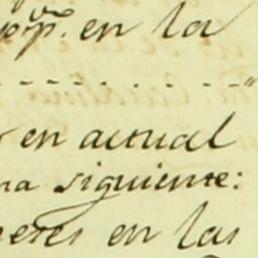 en la
en actual
na siguiente:
en las